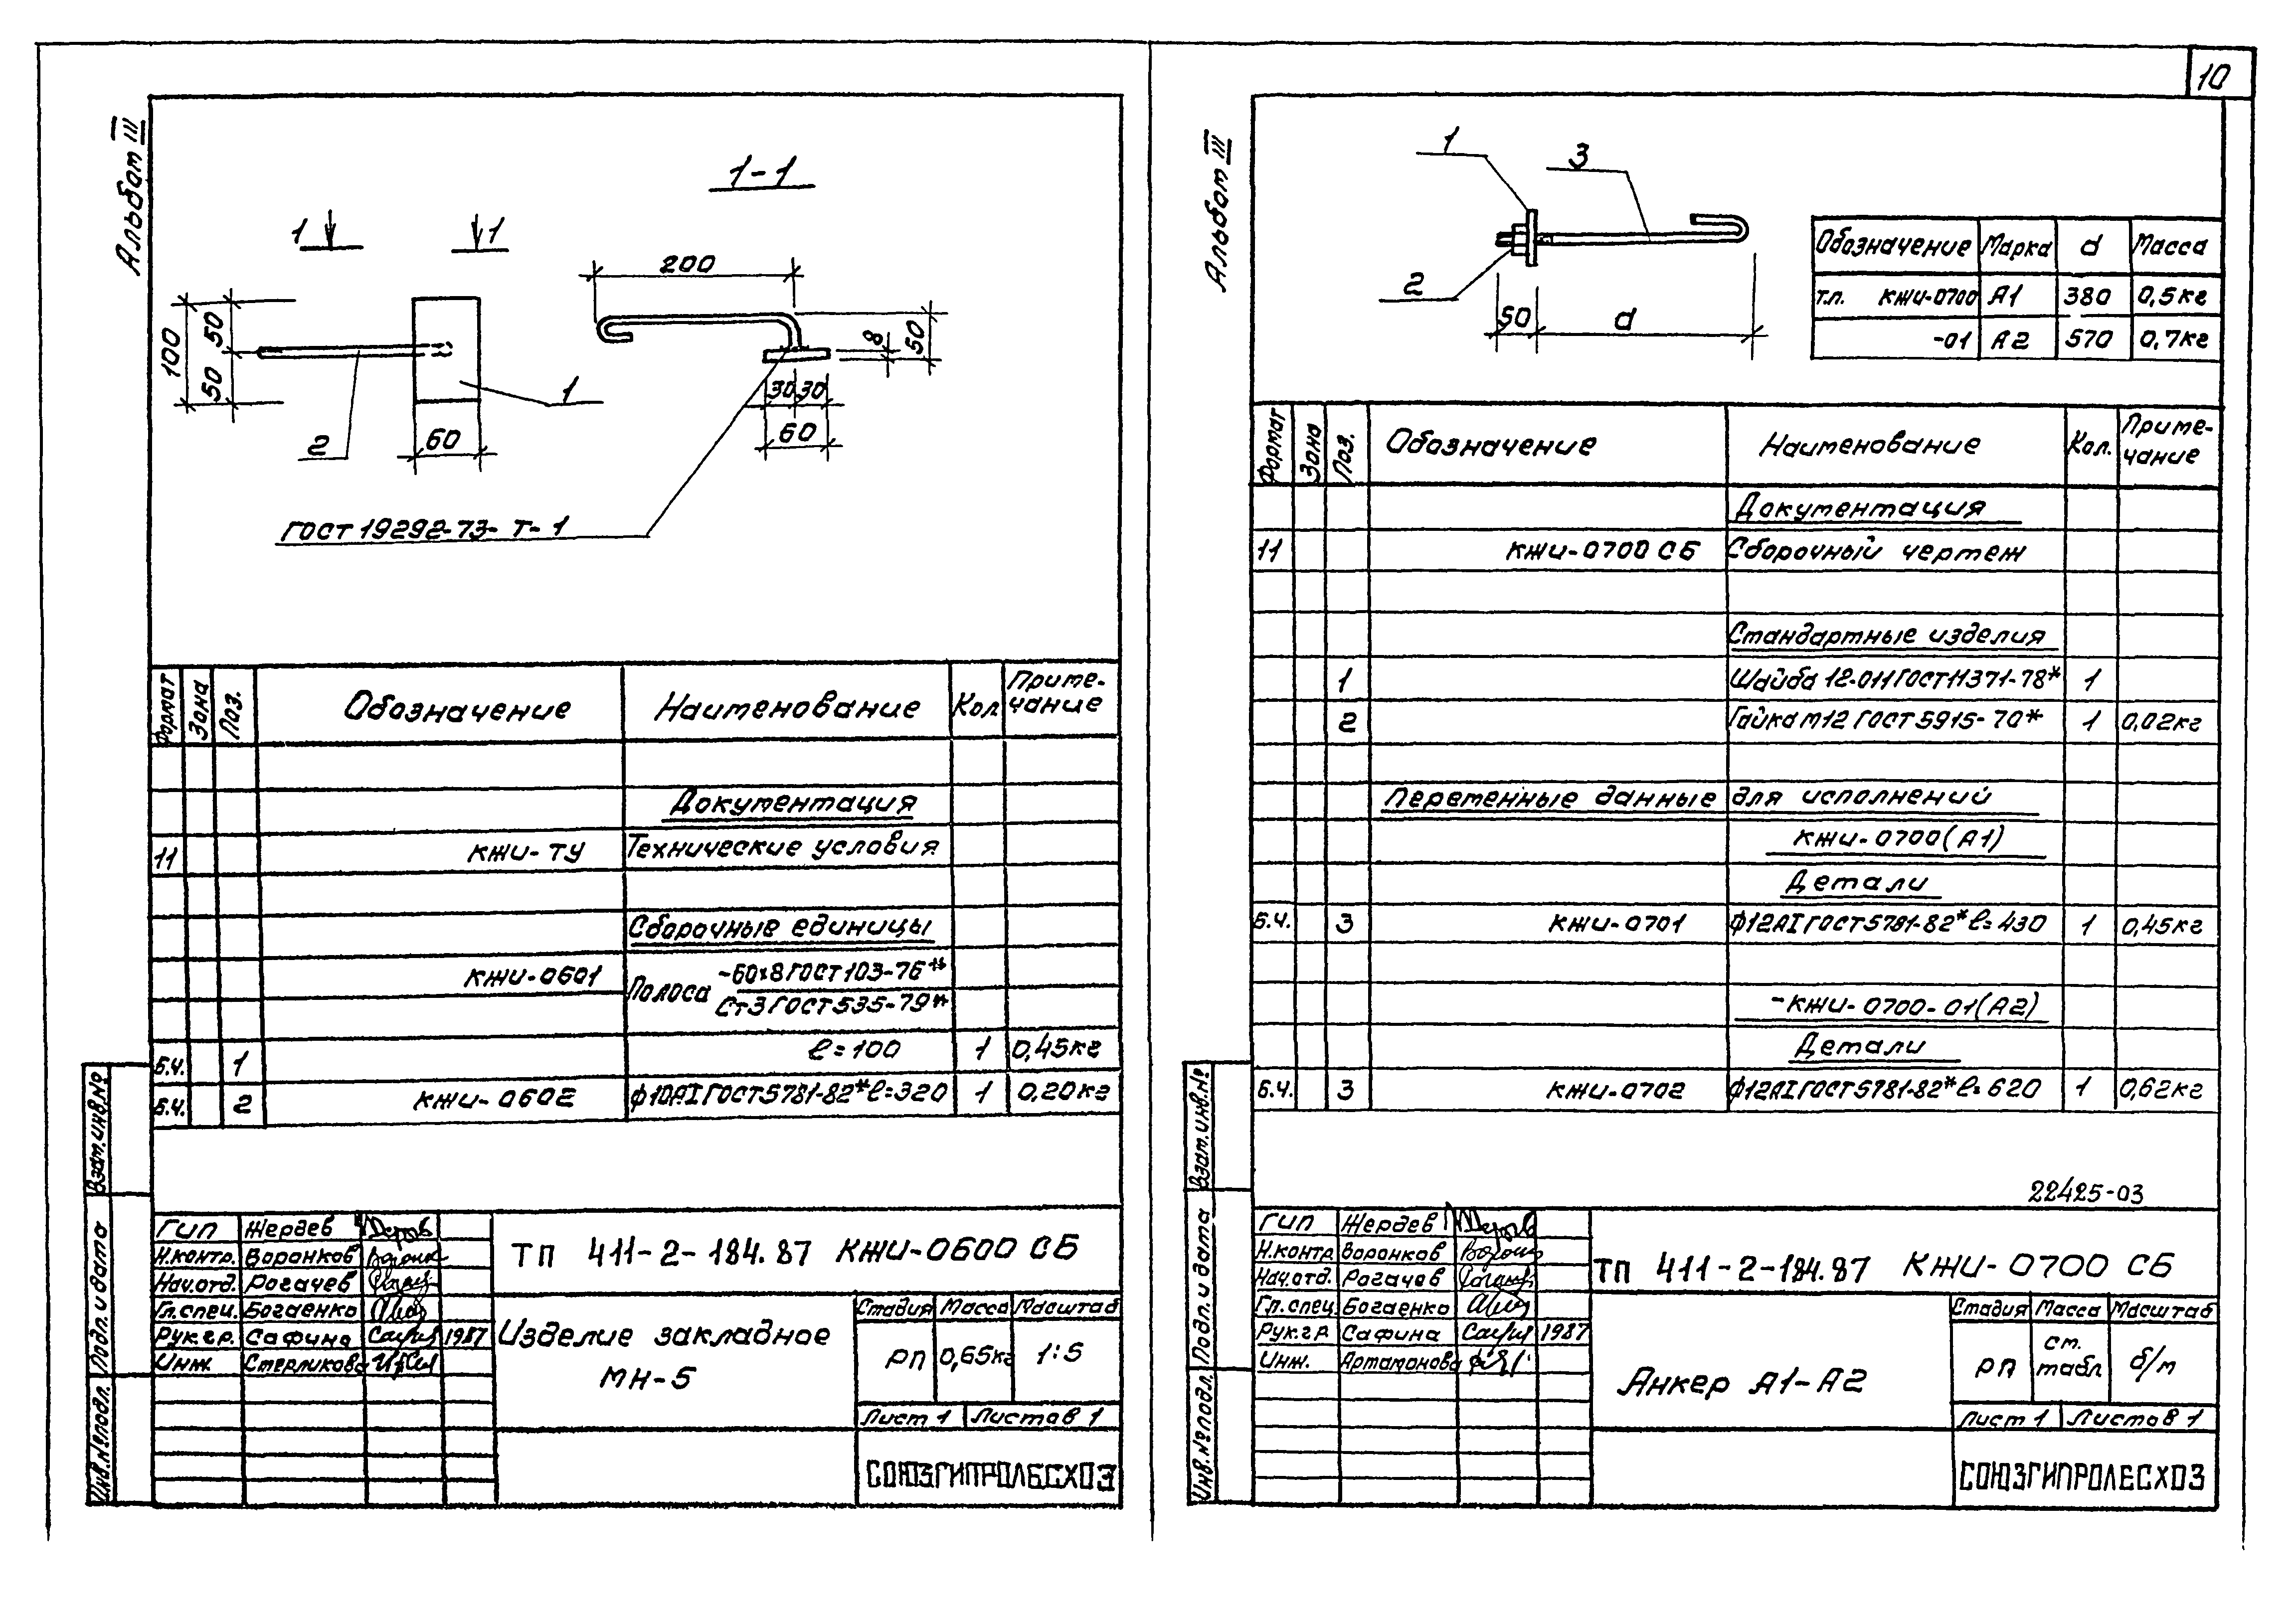 10
Альбом III
1-1
1 1
200
100 50 50
60
1
2
8 50
30 30
60
ГОСТ 19292-73-Т-1
Формат Зона Поз. Обозначение Наименование Кол Приме-чание
Документация
11 КЖИ-ТУ Технические условия
Сборочные единицы
КЖИ-0601 Полоса -60х8 ГОСТ 103-76*
Ст3 ГОСТ 535-79*
Б.Ч. 1 ℓ=100 1 0,45кг
Б.Ч. 2 КЖИ-0602 ф10АI ГОСТ 5781-82* ℓ=320 1 0,20кг
Взам.инв.№
Подп. и дата
Инв.№подл.
ГИП Жердев
Н.контр. Воронков
Нач.отд. Рогачев
Гл.спец. Богаенко
Рук.гр. Сафина 1987
Инж. Стерликова
ТП 411-2-184.87 КЖИ-0600 СБ
Изделие закладное
МН-5
Стадия Масса Масштаб
РП 0,65кг 1:5
Лист 1 Листов 1
СОЮЗГИПРОЛЕСХОЗ
Альбом III
1
3
2
50 d
Обозначение Марка d Масса
т.п. КЖИ-0700 А1 380 0,5кг
-01 А2 570 0,7кг
Формат Зона Поз. Обозначение Наименование Кол. Приме-чание
Документация
11 КЖИ-0700 СБ Сборочный чертеж
Стандартные изделия
1 Шайба 12-011 ГОСТ 11371-78* 1
2 Гайка м12 ГОСТ 5915-70* 1 0,02кг
Переменные данные для исполнений
КЖИ-0700(А1)
Детали
Б.Ч. 3 КЖИ-0701 ф12АI ГОСТ 5781-82* ℓ=430 1 0,45кг
-КЖИ-0700-01(А2)
Детали
Б.Ч. 3 КЖИ-0702 ф12АI ГОСТ 5781-82* ℓ=620 1 0,62кг
22425-03
Взам.инв.№
Подп. и дата
Инв.№подл.
ГИП Жердев
Н.контр Воронков
Нач.отд. Рогачев
Гл.спец Богаенко
Рук.гр Сафина 1987
Инж. Артамонова
ТП 411-2-184.87 КЖИ-0700 СБ
Анкер А1-А2
Стадия Масса Масштаб
РП ст. табл б/м
Лист 1 Листов 1
СОЮЗГИПРОЛЕСХОЗ